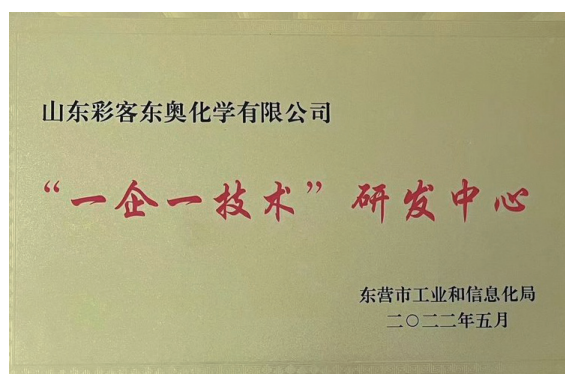 山东彩客东奥化学有限公司
“一企一技术”研发中心
东营市工业和信息化局
二〇二二年五月